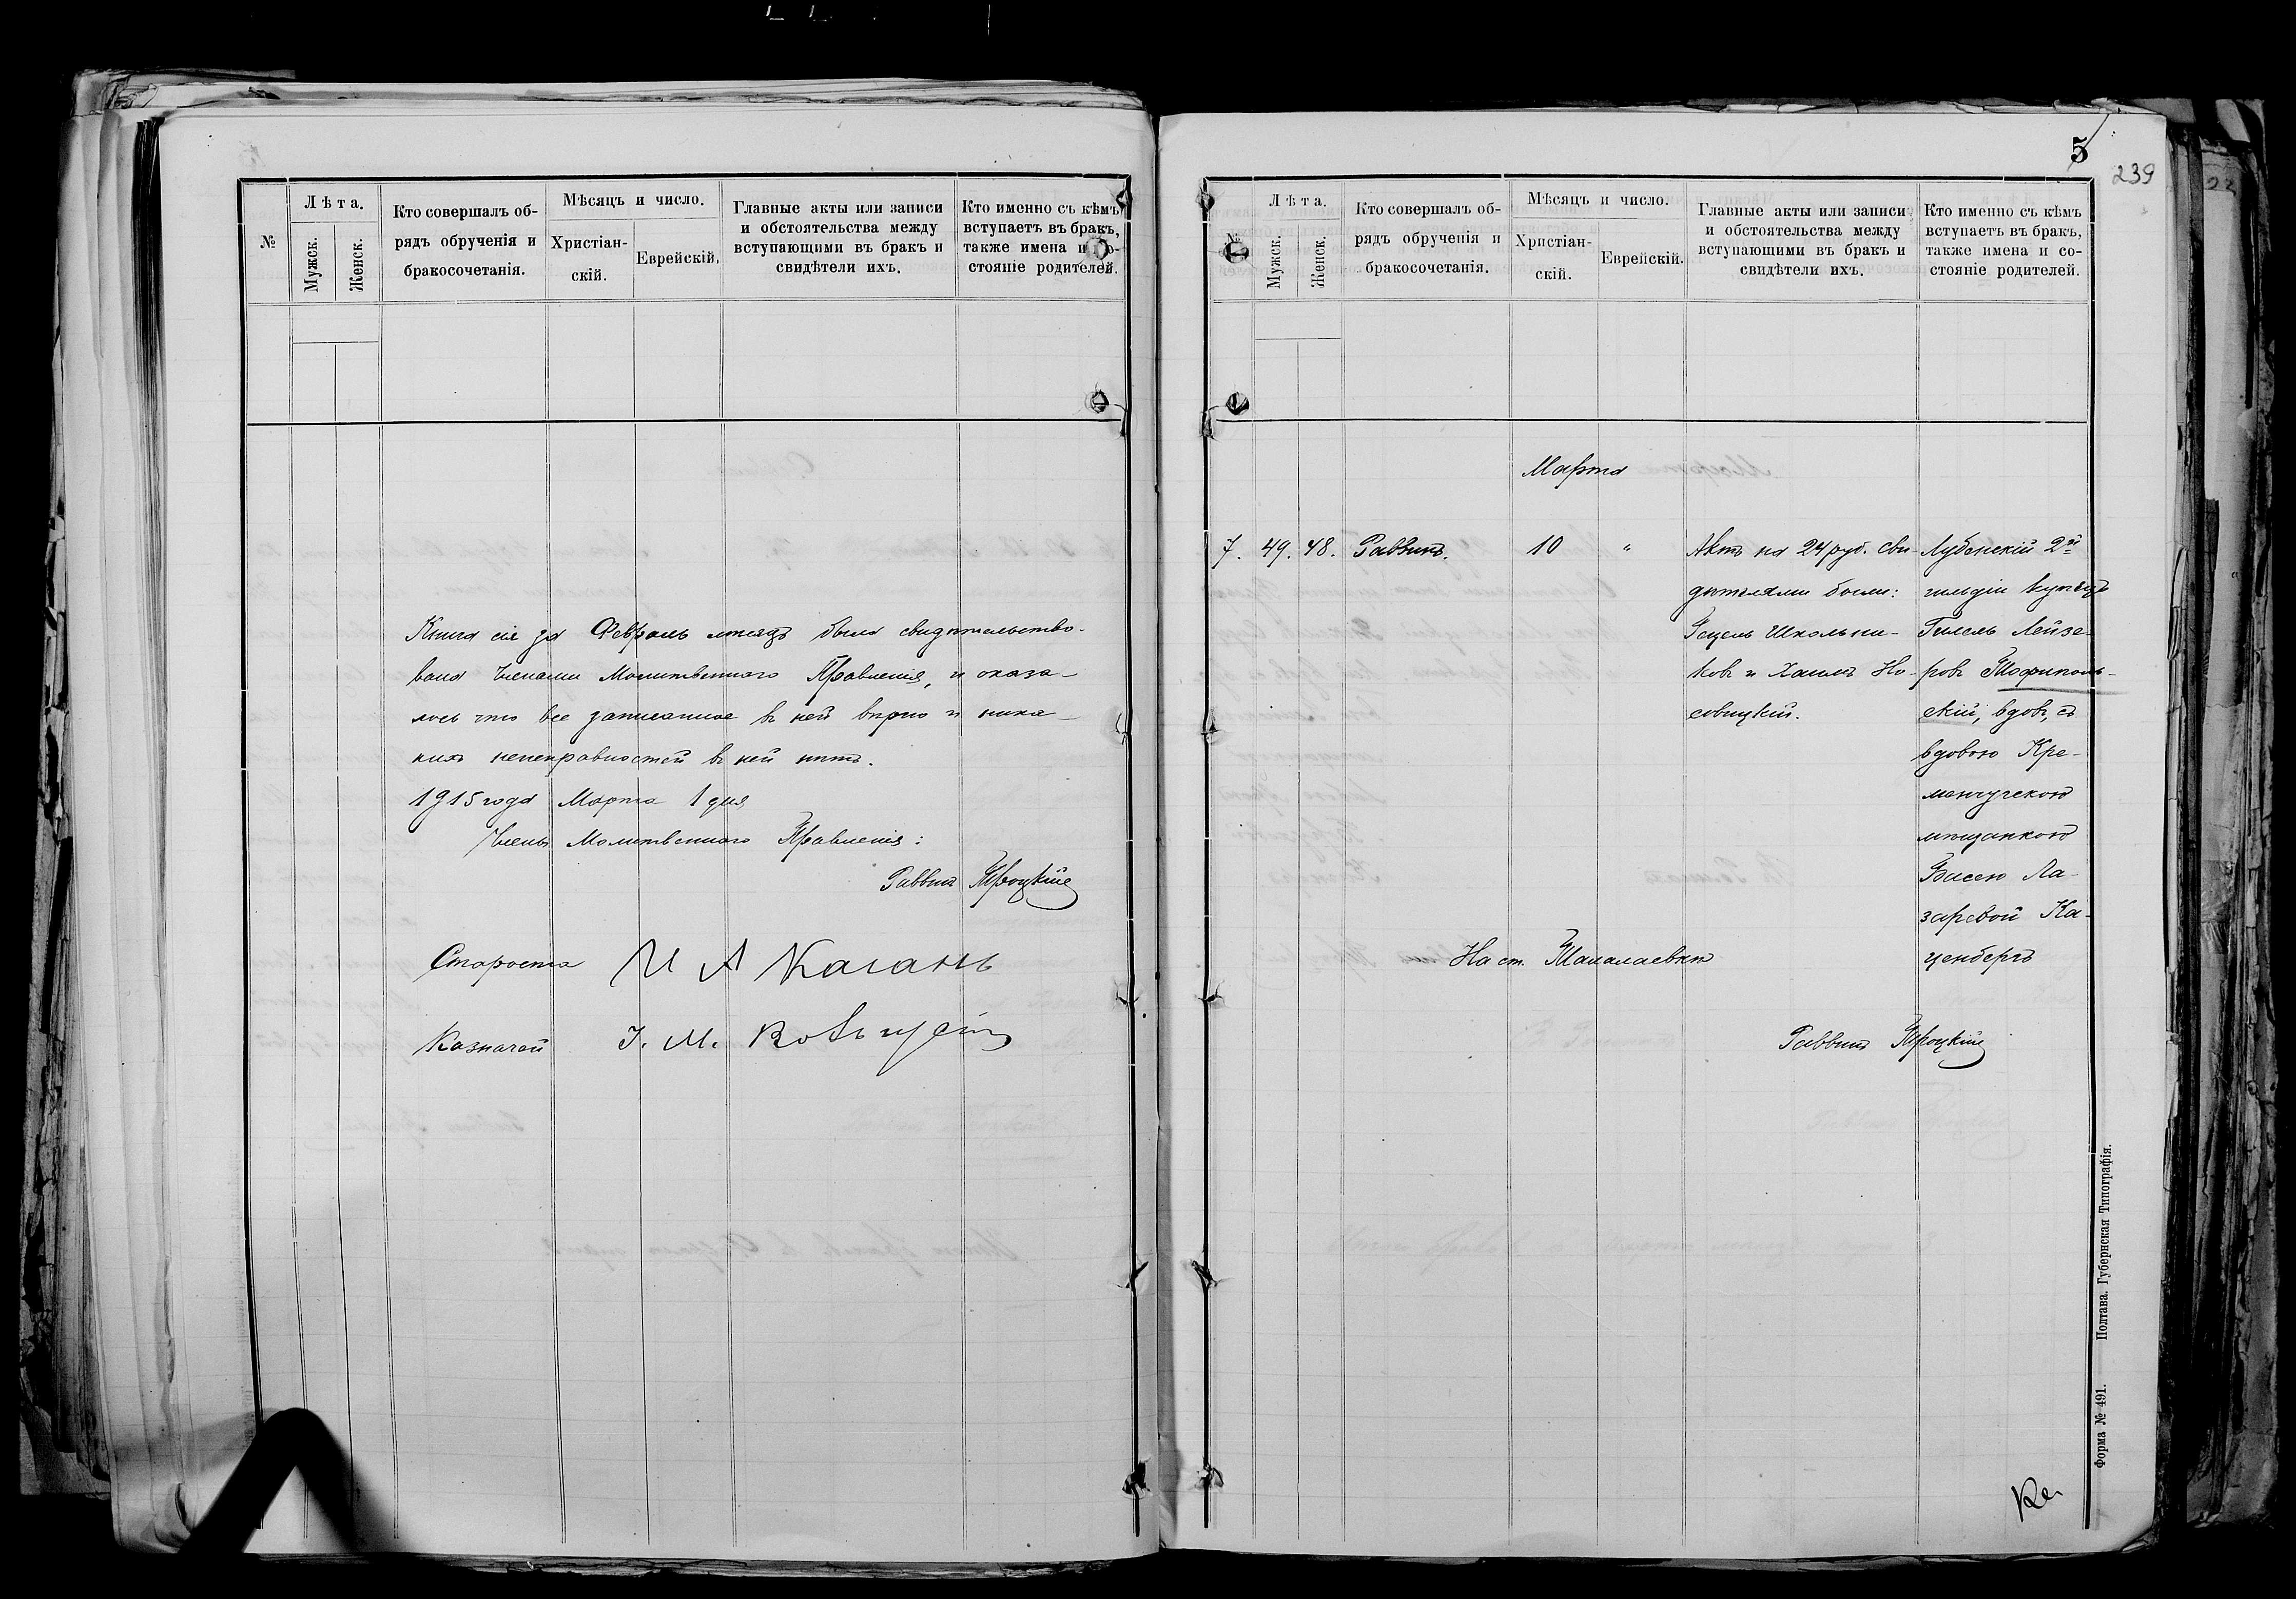 №
Лѣта.
Мужск.
Женск.
Кто совершалъ об-
рядъ обрученія и
бракосочетанія.
Мѣсяцъ и число.
Христіан-
скій.
Еврейскій.
Главные акты или записи
и обстоятельства между
вступающими въ бракъ и
свидѣтели ихъ.
Кто именно съ кѣмъ
вступаетъ въ бракъ,
также имена и со-
стояніе родителей.
Книга сія за Февраль мѣсяцъ была свидѣтельство-
вана Членами Молитвеннаго Правленія, и оказа-
лось что все записанное въ ней вѣрно и ника-
кихъ неисправностей въ ней нѣтъ.
1915 года Марта 1 дня
Члены Молитвеннаго Правленія:
Раввинъ Троцкій
Староста И А Каганъ
Казначей І. М.
5
239
№
Лѣта.
Мужск.
Женск.
Кто совершалъ об-
рядъ обрученія и
бракосочетанія.
Мѣсяцъ и число.
Христіан-
скій.
Еврейскій.
Главные акты или записи
и обстоятельства между
вступающими въ бракъ и
свидѣтели ихъ.
Кто именно съ кѣмъ
вступаетъ въ бракъ,
также имена и со-
стояніе родителей.
Марта
7. 49. 48. Раввинъ. 10 „ Актъ на 24 руб. сви- Лубенскій 2й
дѣтелями были: гильдіи купецъ
Гецель Школьни- Гилель Лейзе-
ковъ и Хаимъ Но- ровъ Тофиполь-
совицкій. скій, вдовъ, съ
вдовою Кре-
менчугскою
мѣщанкою
Басею Ла-
заревой Ка-
На ст. ценбергъ
Раввинъ Троцкій
Форма № 491. Полтава. Губернская Типографія.